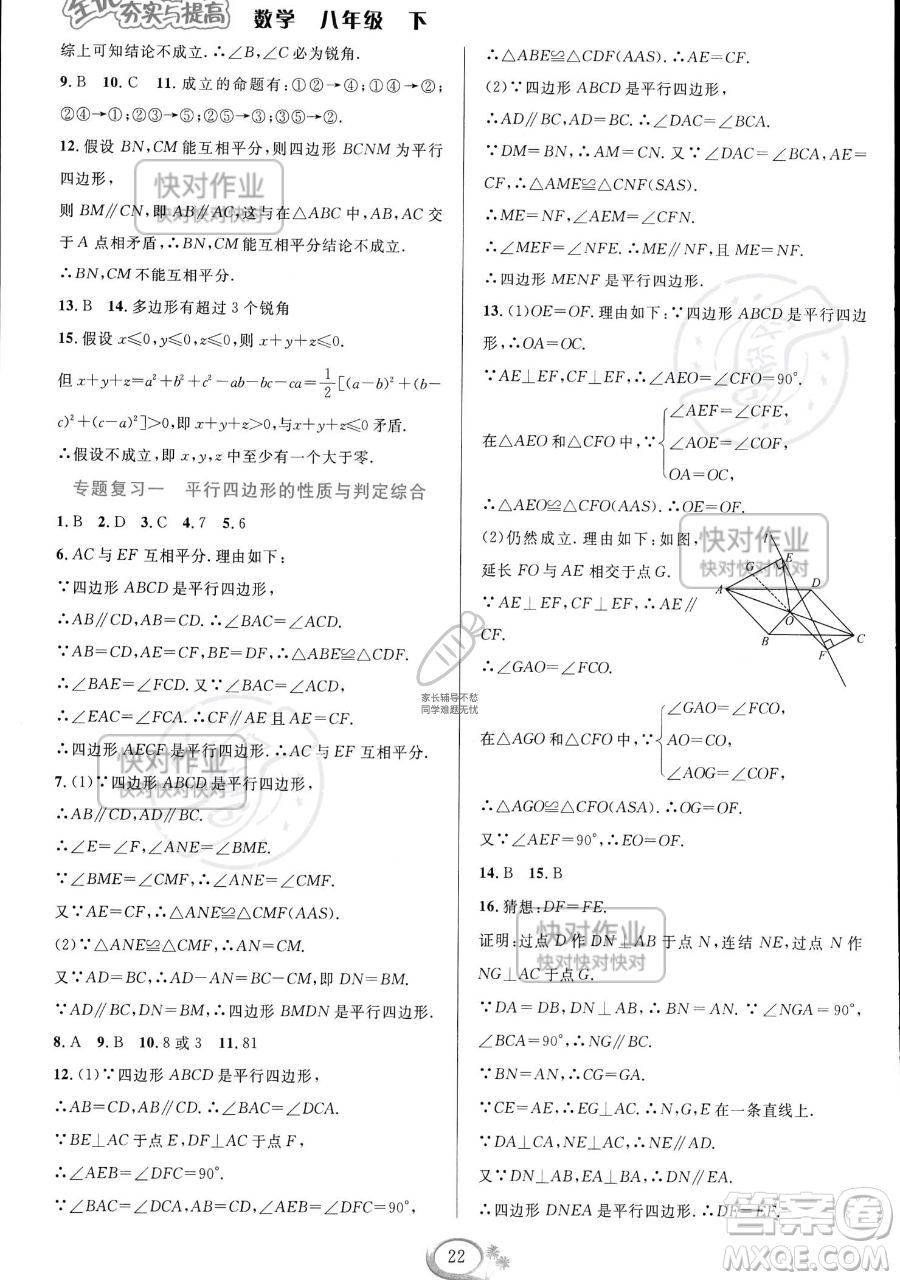 全优
夯实与提高
数学 八年级 下
综上可知结论不成立.∴∠B,∠C 必为锐角.
9.B 10.C 11.成立的命题有:①②→④;①④→②;
②④→①;②⑤→③;③⑤→②;②③→⑤.
12.假设 BN,CM 能互相平分,则四边形 BCNM 为平行
四边形,
则 BM∥CN,即 AB∥AC.这与在△ABC 中,AB,AC 交
于 A 点相矛盾,∴BN,CM 能互相平分结论不成立.
∴BN,CM 不能互相平分.
13.B 14.多边形有超过 3 个锐角
15.假设 x≤0,y≤0,z≤0,则 x+y+z≤0.
但 x+y+z=a²+b²+c²-ab-bc-ca=1/2[(a-b)²+(b-
c)²+(c-a)²]>0,与 x+y+z≤0 矛盾.
∴假设不成立,即 x,y,z 中至少有一个大于零.
专题复习一 平行四边形的性质与判定综合
1.B 2.D 3.C 4.7 5.6
6.AC 与 EF 互相平分.理由如下:
∵四边形 ABCD 是平行四边形,
∴AB∥CD,AB=CD.∴∠BAC=∠ACD.
∵AB=CD,BE=DF,∴△ABE≌△CDF.
∴∠BAE=∠FCD.又∵∠BAC=∠ACD,
∴∠EAC=∠FCA.∴CF∥AE.且AE=CF.
∴四边形 AECF 是平行四边形.∴AC 与 EF 互相平分.
7.(1)∵四边形 ABCD 是平行四边形,
∴AB∥CD,AD∥BC.
∴∠E=∠F,∠ANE=∠BME.
∵∠BME=∠CMF,∴∠ANE=∠CMF.
又∵AE=CF,∴△ANE≌△CMF(AAS).
(2)∵△ANE≌△CMF,∴AN=CM.
又∵AD=BC,∴AD-AN=BC-CM,即 DN=BM.
∵AD∥BC,DN=BM,∴四边形 BMDN 是平行四边形.
8.A 9.B 10.8 或 3 11.81
12.(1)∵四边形 ABCD 是平行四边形,
∴AB=CD,AB∥CD.∴∠BAC=∠DCA.
∵BE⊥AC 于点 E,DF⊥AC 于点 F,
∴∠AEB=∠DFC=90°.
∵∠BAC=∠DCA,AB=CD,∠AEB=∠DFC,
∴△ABE≌△CDF(AAS).∴AE=CF.
(2)∵四边形 ABCD 是平行四边形,
∴AD∥BC,AD=BC.∴∠DAC=∠BCA.
∵DM=BN,∴AM=CN.又∵∠DAC=∠BCA,AE=
CF,∴△AME≌△CNF(SAS).
∴ME=NF,∠AEM=∠CFN.
∴∠MEF=∠NFE.∴ME∥NF.且ME=NF.
∴四边形 MENF 是平行四边形.
13.(1)OE=OF.理由如下:∵四边形 ABCD 是平行四边
形,∴OA=OC.
∵AE⊥EF,CF⊥EF,∴∠AEO=∠CFO=90°.
∠AEF=∠CFE,
在△AEO 和△CFO 中,∵ ∠AOE=∠COF,
OA=OC,
∴△AEO≌△CFO.∴OE=OF.
(2)仍然成立.理由如下:如图,
延长 FO 与 AE 相交于点 G.
∵AE⊥EF,CF⊥EF,∴AE∥
CF.
∴∠GAO=∠FCO.
l
G
E
A
D
O
B
C
F
∠GAO=∠FCO,
在△AGO 和△CFO 中,∵ AO=CO,
∠AOG=∠COF,
∴△AGO≌△CFO(ASA).∴GO=FO.
又∵∠AEF=90°,∴OE=OF.
14.B 15.B
16.猜想:DF=FE.
证明:过点 D 作 DN⊥AB 于点 N,连结 NE,过点 N 作
NG⊥AC 于点 G.
∵DA=DB,∴N 是 AB 的中点.∵∠NGA=90°,
∠BCA=90°,∴CG=GA.
∵CE=AE,∴CG=GE.∴N,G,E 在一条直线上.
∵DA⊥CA,NE⊥CA,∴DA∥NE.
又∵DN⊥AB,EA⊥AB,∴DN∥EA.
∴四边形 DNEA 是平行四边形.∴DF=EF.
22
快对作业
快对快对快对
快对作业
快对快对快对
快对作业
快对快对快对
快对作业
快对快对快对
家长辅导不愁
同学难题无忧
答案圈
MXQE.COM